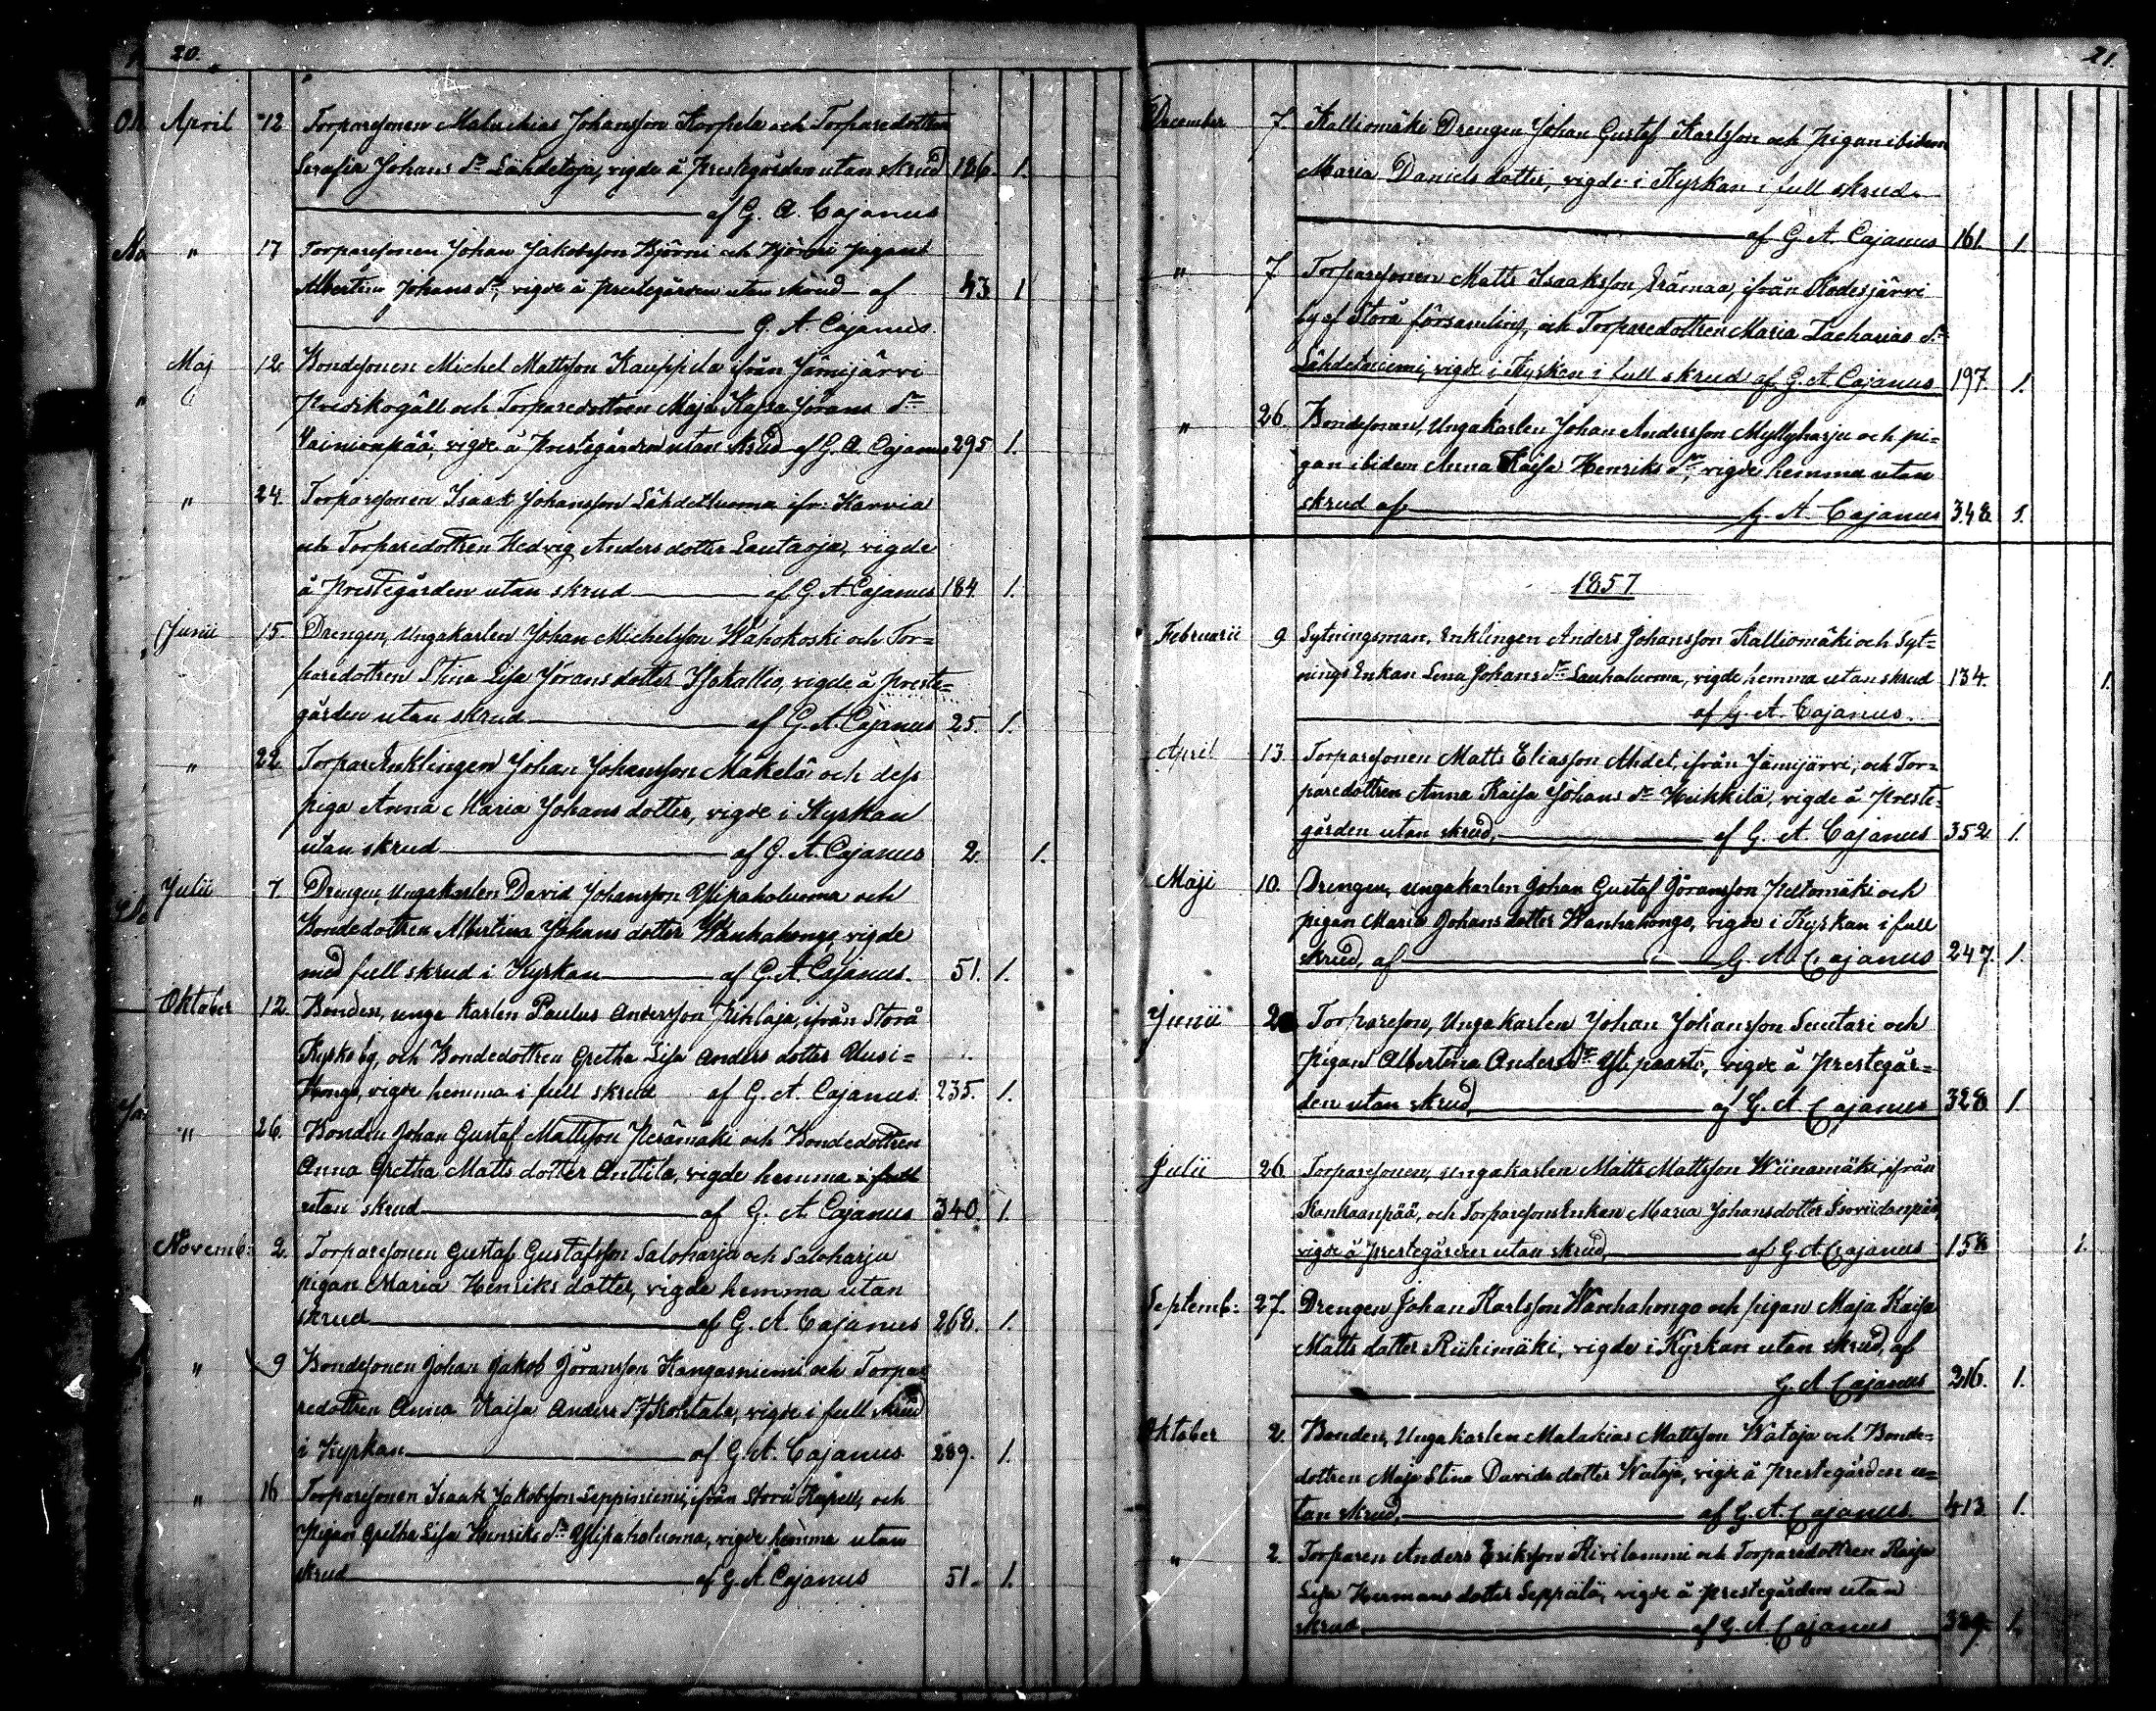 20.
April 12 Torparesonen Malachias Johansson Korpela och Torparedottren
Serafia Johans dr Lähdetoja, vigde å Prestegården utan skrud 186. 1.
af G. A. Cajanus
" 17 Torparesonen Johan Jakobsson Björni och Björni pigan
Albertina Johans dr, vigde å prestegården utan skrud af 43 1
G. A. Cajanus.
Maj 12 Bondesonen Michel Mattsson Kauppila ifrån Jämijärvi
Predikogäll och Torparedottren Maja Kajsa Jörans dr
Vainionpää, vigde å Prestegården utan skrud af G. A. Cajanus 295 1.
" 24. Torparesonen Isaak Johansson Lähdetluoma ifr. Karvia
och Torparedottren Hedvig Anders dotter Lautaoja, vigde
å Prestegården utan skrud af G. A Cajanus 184 1.
Junii 15. Drengen, Ungakarlen Johan Michelsson Wahokoski och Tor=
paredottren Stina Lisa Jörans dotter Isokallio, vigde å Preste=
gården utan skrud af G. A. Cajanus 25. 1.
" 22 TorpareEnklingen Johan Johansson Mäkelä och dess
piga Anna Maria Johans dotter, vigde i Kyrkan
utan skrud af G. A. Cajanus 2. 1.
Julii 7. Drengen, Ungakarlen David Johansson Ylipaholuoma och
Bondedottren Albertina Johans dotter Wanhahongo, vigde
med full skrud i Kyrkan af G. A Cajanus. 51. 1.
Oktober 12. Bonden, unge Karlen Paulus Andersson Pihlaja, ifrån Storå
Kyrko by, och Bondedottren Gretha Lisa Anders dotter Uusi=
Hongo, vigde hemma i full skrud af G. A. Cajanus 235. 1.
" 26. Bonden Johan Gustaf Mattsson Perämäki och Bondedottren
Anna Gretha Matts dotter Anttila, vigde hemma i full
utan skrud af G. A Cajanus 340. 1.
Novemb: 2. Torparesonen Gustaf Gustafsson Saloharju och Saloharju
pigan Maria Henriks dotter, vigde hemma utan
skrud af G. A. Cajanus 268. 1.
" 9 Bondesonen Johan Jakob Jöransson Kangasniemi och Torpa
redottren Anna Kaisa Anders dr Kohtala, vigde i full skrud
i Kyrkan af G. A. Cajanus 289. 1.
" 16 Torparesonen Isaak Jakobsson Leppiniemi, ifrån Storå Kapell, och
Pigan Gretha Lisa Henriks dr Ylipaholuoma, vigde hemma utan
skrud af G. A Cajanus 51. 1.
21.
December 7. Kalliomäki Drengen Johan Gustaf Karlsson och Pigan ibidem
Maria Daniels dotter, vigde i Kyrkan i full skrud.
af G. A. Cajanus 161 1.
" 7 Torparesonen Matts Isaaksson Perämaa, ifrån Kodesjärvi
by af Storå församling, och Torparedottren Maria Zacharias dr
Lähdetniemi, vigde i Kyrkan i full skrud af G. A. Cajanus 197. 1.
" 26. Bondesonen, Ungakarlen Johan Andersson Myllyharju och pi=
gan ibidem Anna Kaisa Henriks dr, vigde hemma utan
skrud af G. A. Cajanus 348 1.
1857
Februarii 9 Sytningsman, Enklingen Anders Johansson Kalliomäki och Syt=
nings Enkan Lena Johans dr Lauhaluoma, vigde hemma utan skrud 134. 1.
af G. A. Cajanus.
April 13. Torparesonen Matts Eliasson Ahdet, ifrån Jämijärvi, och Tor=
paredottren Anna Kaisa Johans dr Heikkilä, vigde å Preste=
gården utan skrud, af G. A. Cajanus 352 1.
Maji 10. Drengen, ungakarlen Johan Gustaf Jöransson Peltomäki och
pigan Maria Johans dotter Wanhahongo, vigde i Kyrkan i full
skrud, af G. A. Cajanus 247. 1.
Junii 2 Torpareson, Ungakarlen Johan Johansson Suutari och
Pigan Albertina Anders dr Ylipaarti, vigde å Prestegår=
den utan skrud, af G. A Cajanus 328 1.
Julii 26 Torparesonen, ungakarlen Matts Mattsson Wiinamäki, ifrån
Kankaanpää, och TorparesonsEnkan Maria Johans dotter Isoviidanpää,
vigde å Prestegården utan skrud, af G. A Cajanus 158 1.
Septemb: 27. Drengen Johan Karlsson Wanhahongo och pigan Maja Kaisa
Matts dotter Riihimäki, vigde i Kyrkan utan skrud, af
G. A Cajanus 216. 1.
Oktober 2. Bonden, Ungakarlen Malakias Mattsson Wataja och Bonde=
dottren Maja Stina Davids dotter Wataja, vigde å Prestegården u=
tan skrud, af G. A. Cajanus 413 1.
" 2. Torparen Anders Eriksson Kivilammi och Torparedottren Kaisa
Lisa Hermans dotter Leppälä, vigde å prestegården utan
skrud af G. A Cajanus 1.